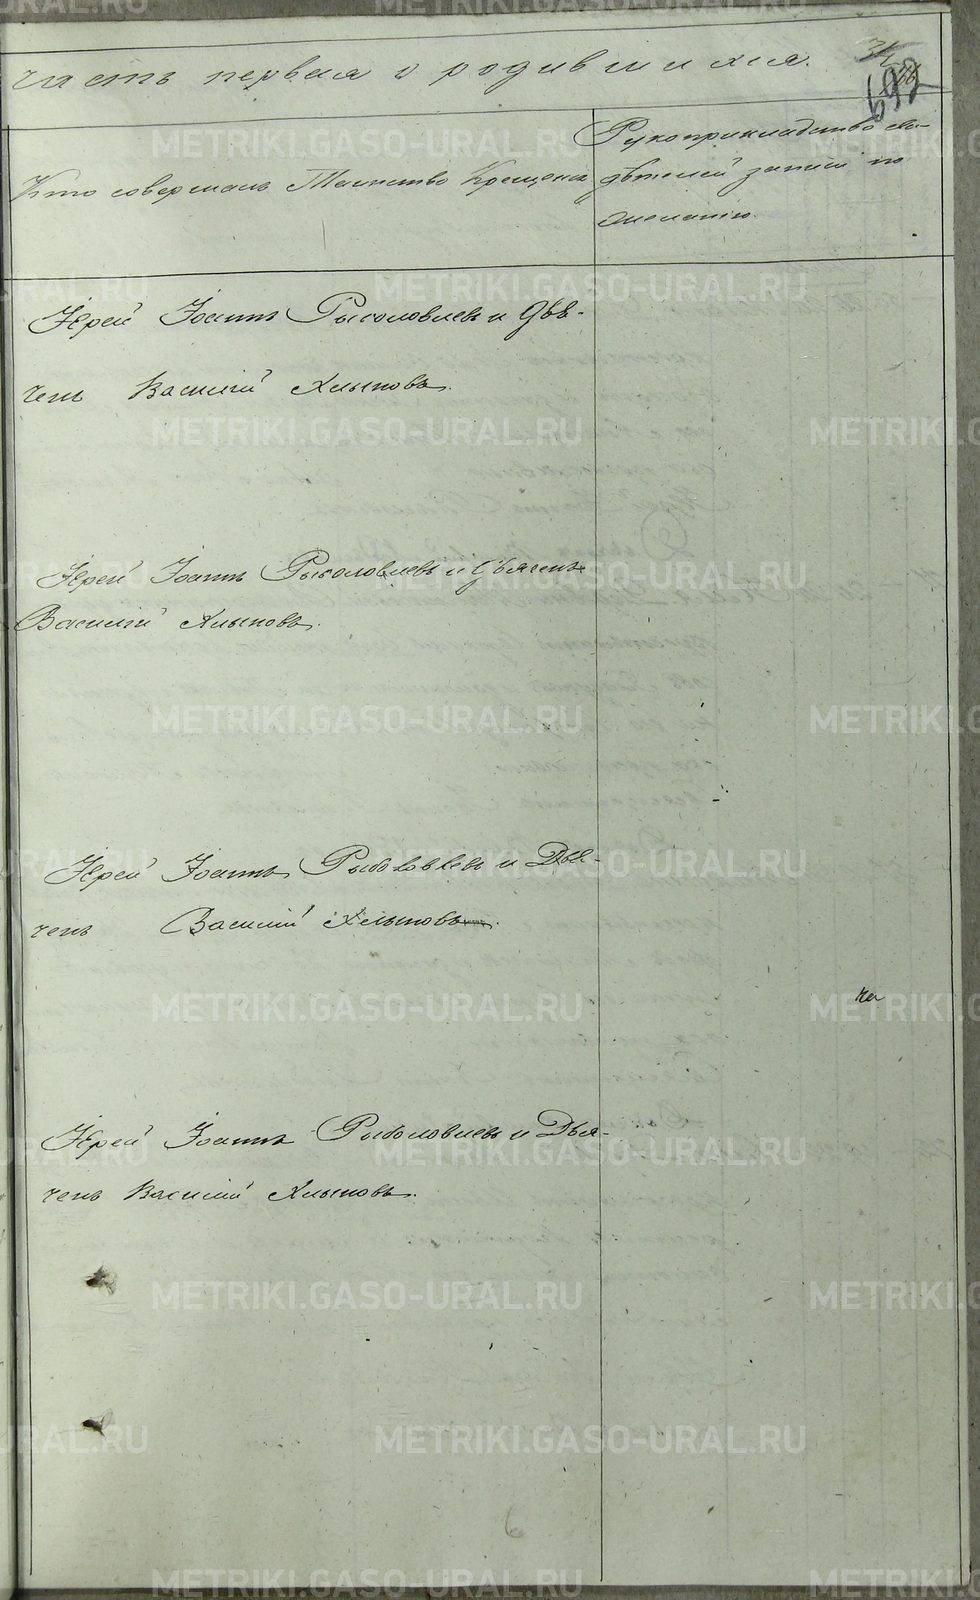 часть первая о родившихся.
692
Кто совершалъ Таинство Крещенія
Рукоприкладство сви-
дѣтелей записи по
желанію.
Іерей Іоаннъ Рыболовлевъ и Дья-
чекъ Василій Хлыновъ.
Іерей Іоаннъ Рыболовлевъ и Дьячекъ
Василій Хлыновъ.
Іерей Іоаннъ Рыболовлевъ и Дья-
чекъ Василій Хлыновъ.
Іерей Іоаннъ Рыболовлевъ и Дья-
чекъ Василій Хлыновъ.
6
METRIKI.GASO-URAL.RU